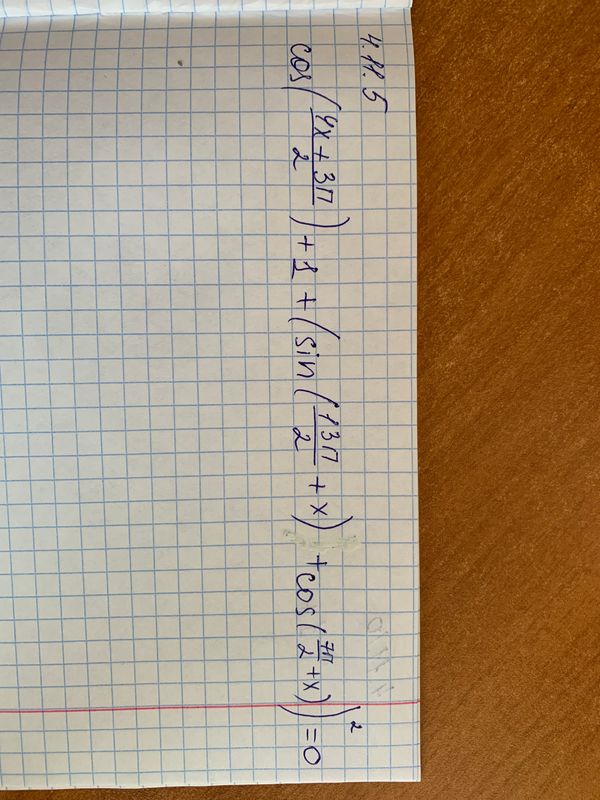 4.11.5
cos((4x + 3π)/2) + 1 + (sin(13π/2 + x) + cos(7π/2 + x))² = 0